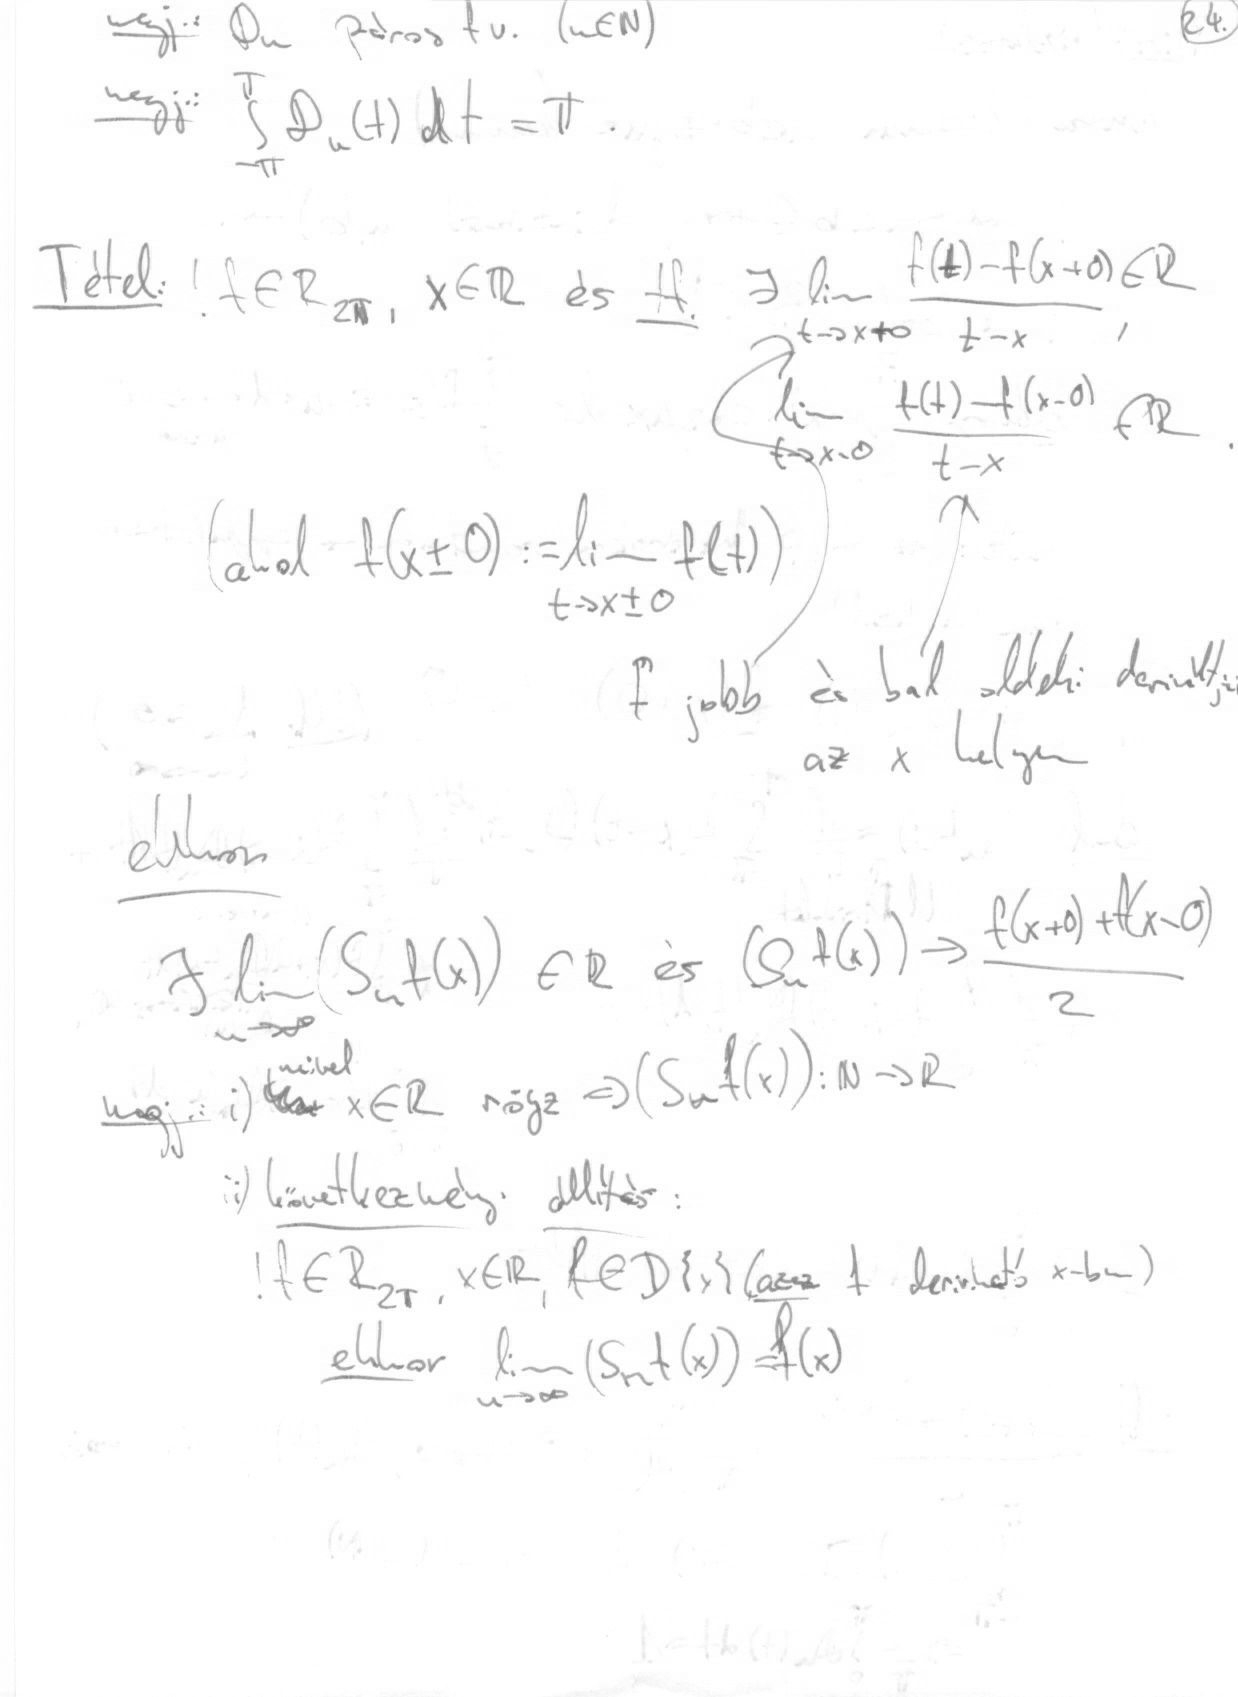 24.
megj.: Dn páros fv. (n∈N)
megj.: ∫_{-π}^{π} Dn(t) dt = π.
Tétel: ! f∈R_{2π}, x∈R és tf. ∃ lim_{t→x+0} (f(t)-f(x+0))/(t-x) ∈R,
lim_{t→x-0} (f(t)-f(x-0))/(t-x) ∈R.
(ahol f(x±0) := lim_{t→x±0} f(t))
f jobb és bal oldali deriváltjai
az x helyen
ekkor
∃ lim_{n→∞} (Sn f(x)) ∈R és (Sn f(x)) → (f(x+0)+f(x-0))/2
megj.: i) mivel x∈R rögz ⇒ (Sn f(x)): N→R
ii) következmény állítás:
! f∈R_{2π}, x∈R, f∈D{x} (azaz f deriválható x-ben)
ekkor lim_{n→∞} (Sn f(x)) = f(x)